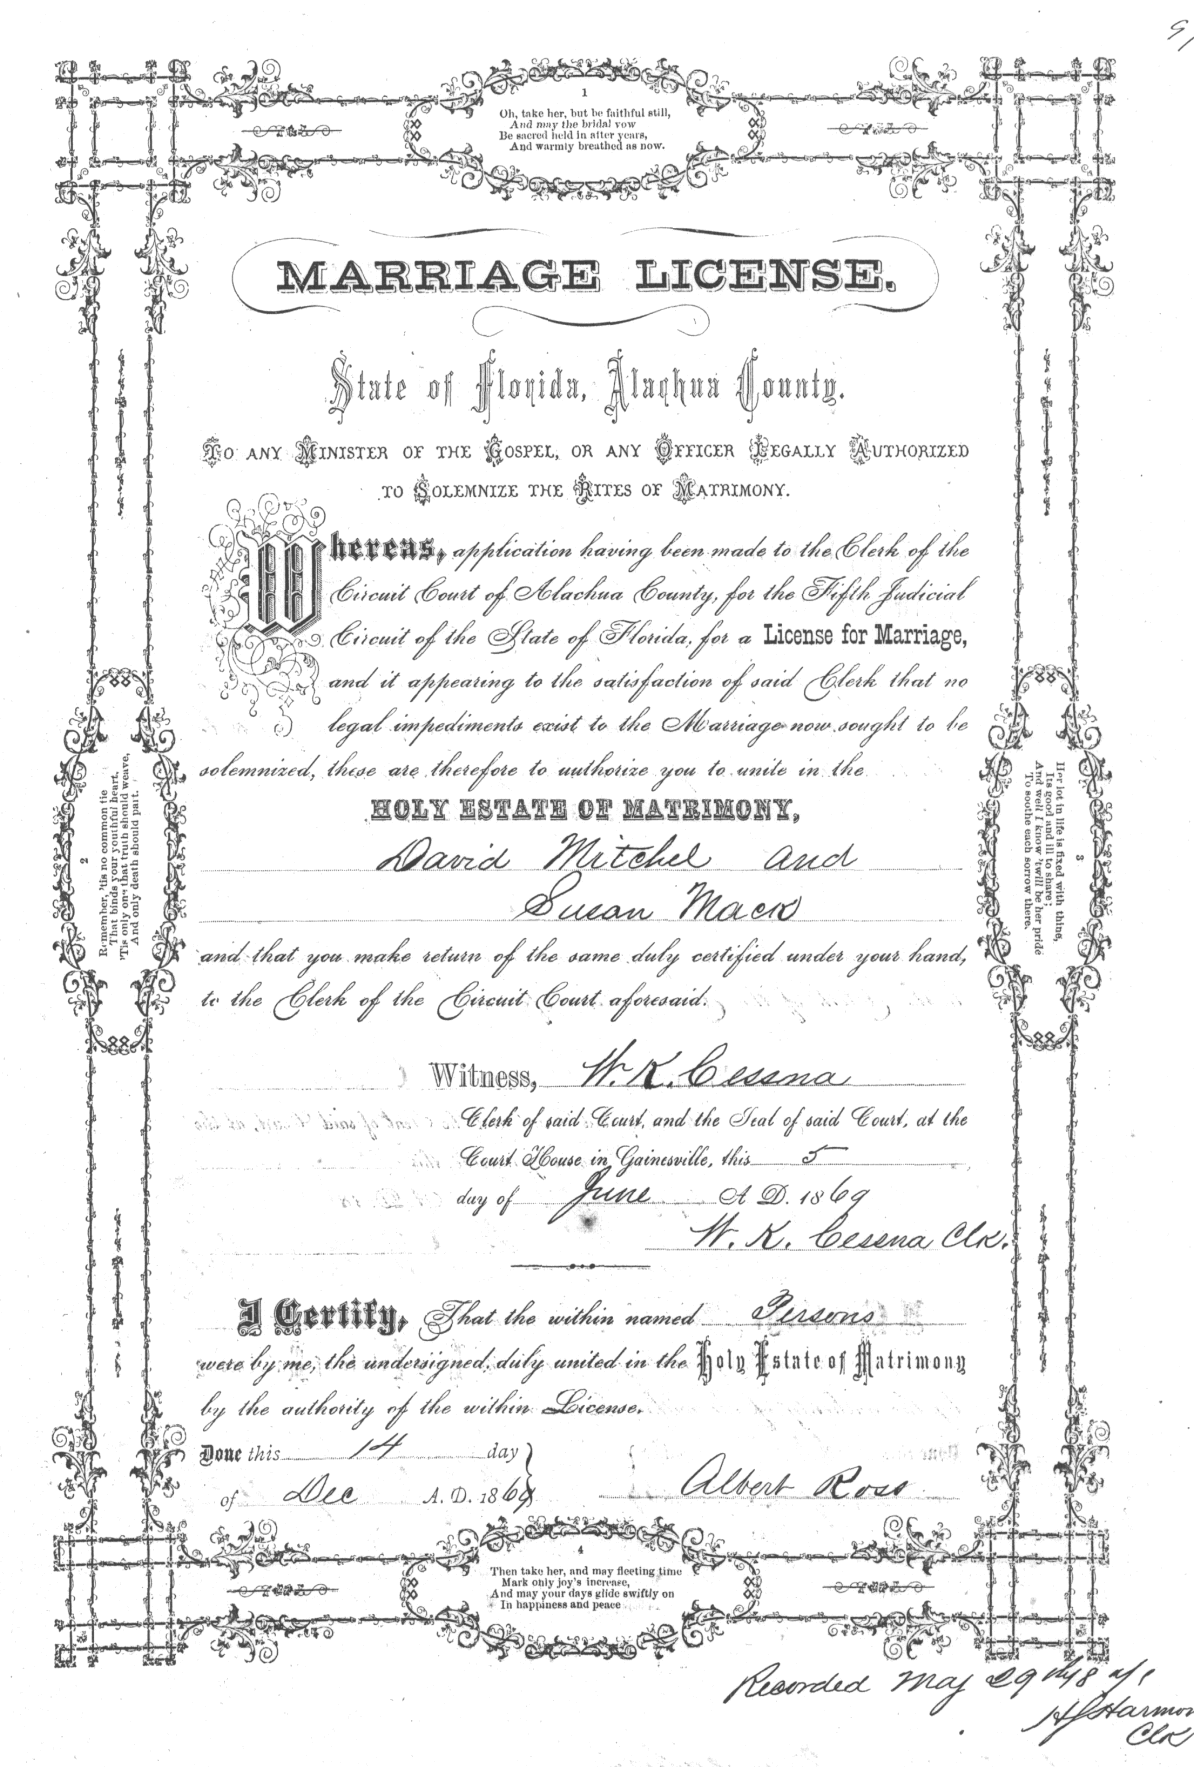 1
Oh, take her, but be faithful still,
And may the bridal vow
Be sacred held in after years,
And warmly breathed as now.
MARRIAGE LICENSE.
State of Florida, Alachua County.
TO ANY MINISTER OF THE GOSPEL, OR ANY OFFICER LEGALLY AUTHORIZED
TO SOLEMNIZE THE RITES OF MATRIMONY.
Whereas, application having been made to the Clerk of the
Circuit Court of Alachua County, for the Fifth Judicial
Circuit of the State of Florida, for a License for Marriage,
and it appearing to the satisfaction of said Clerk that no
legal impediments exist to the Marriage now sought to be
solemnized, these are therefore to authorize you to unite in the
HOLY ESTATE OF MATRIMONY,
David Mitchel and
Susan Mack
and that you make return of the same duly certified under your hand,
to the Clerk of the Circuit Court aforesaid.
Witness, W. K. Cessna
Clerk of said Court, and the Seal of said Court, at the
Court House in Gainesville, this 5
day of June A D. 1869
W. K. Cessna Clk.
I Certify, That the within named Persons
were by me, the undersigned, duly united in the Holy Estate of Matrimony
by the authority of the within License.
Done this 14 day
of Dec A. D. 1869
Albert Ross
2
Remember, 'tis no common tie
That binds your youthful heart,
'Tis only one that truth should weave,
And only death should part.
3
Her lot in life is fixed with thine,
Its good and ill to share;
And well I know 'twill be her pride
To soothe each sorrow there.
4
Then take her, and may fleeting time
Mark only joy's increase,
And may your days glide swiftly on
In happiness and peace
Recorded May 29
Harmon
Clk